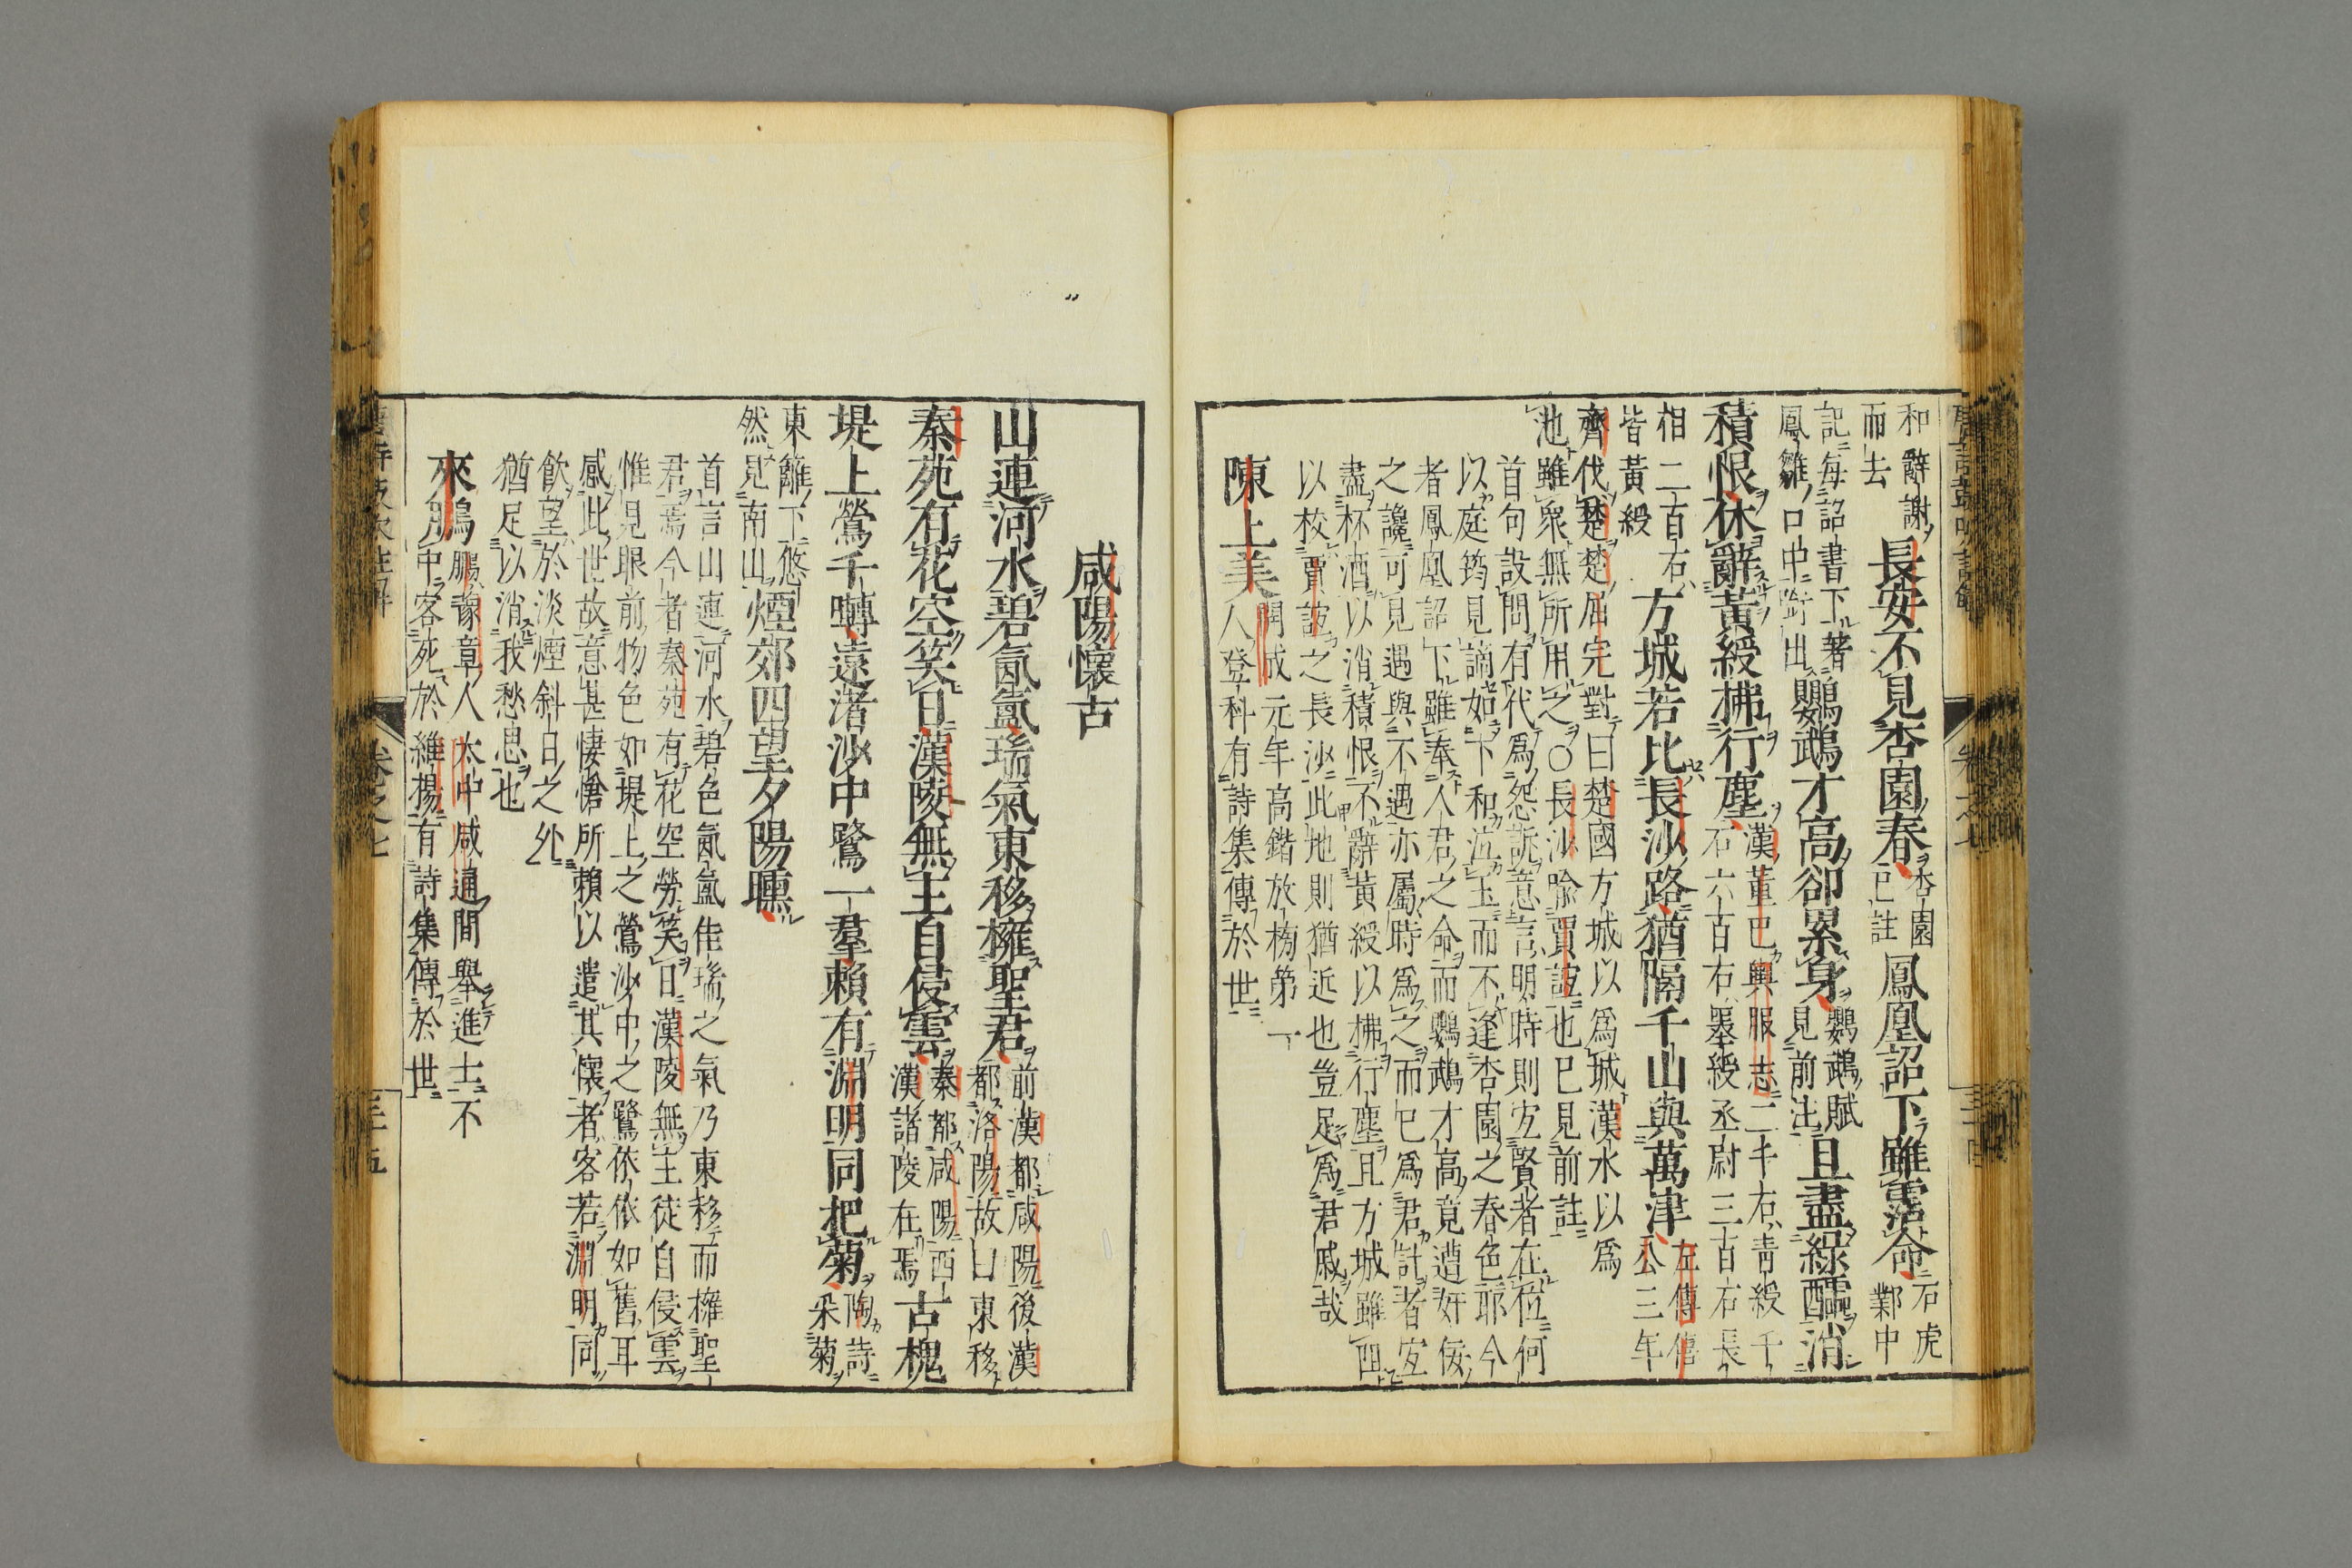 和辭謝
而去
長安不見杏園春
杏園
已註
鳳凰詔下雖霑命
石虎
鄴中
記每詔書下著
鳳雛口中銜出
鸚鵡才高卻累身
鸚鵡賦
見前註
且盡綠醽消
積恨休辭黃綬拂行塵
漢董巴輿服志二千石青綬千
石六百石墨綬丞尉三百石長
相二百石
皆黃綬
方城若比長沙路猶隔千山與萬津
左傳僖
公三年
齊伐楚楚屈完對曰楚國方城以爲城漢水以爲
池雖衆無所用之○長沙喻賈誼也已見前註
首句設問有代爲怨訴意言明時則宜賢者在位何
以庭筠見謫如卞和泣玉而不逢杏園之春色耶今
者鳳凰詔下雖奉人君之命而鸚鵡才高竟遭奸佞
之讒可見遇與不遇亦屬時爲之而已爲君計者宜
盡杯酒以消積恨不辭黃綬以拂行塵且方城雖四
以校賈誼之長沙此地則猶近也豈足爲君戚哉
陳上美
開成元年高鍇放榜第一
人登科有詩集傳於世
咸陽懷古
山連河水碧氤氳瑞氣東移擁聖君
前漢都咸陽後漢
都洛陽故曰東移
秦苑有花空笑日漢陵無主自侵雲
秦都咸陽西
漢諸陵在焉
古槐
堤上鶯千囀遠渚沙中鷺一羣賴有淵明同把菊
陶詩
采菊
東籬下悠
然見南山
煙郊四望夕陽曛
首言山連河水碧色氤氳佳瑞之氣乃東移而擁聖
君焉今者秦苑有花空勞笑日漢陵無主徒自侵雲
惟見眼前物色如堤上之鶯沙中之鷺依依如舊耳
感此世故意甚悽愴所賴以遣其懷者客若淵明同
飲望於淡煙斜日之外
猶足以消我愁思也
來鵬
鵬豫章人大中咸通間舉進士不
中客死於維揚有詩集傳於世
卷之七
三十五